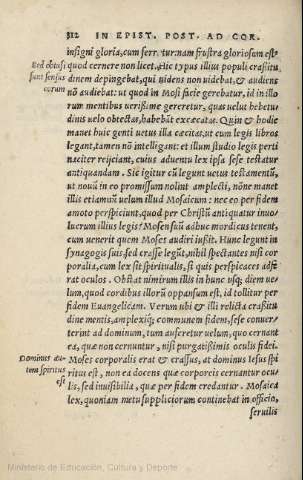 312 IN EPIST. POST. AD COR.
insigni gloria, cum ferretur: nam frustra gloriosum est
Sed obtusi quod cernere non licet. Hic typus illius populi crassitu
sunt sensus dinem depingebat, qui uidens non uidebat, & audiens
eorum nō audiebat: ut quod in Mosi facie gerebatur, id in illo
rum mentibus uerissime gereretur, quas uelut hebetu
dinis uelo obtectas, habebāt excæcatas. Quin & hodie
manet huic genti uetus illa cæcitas, ut cum legis libros
legant, tamen nō intelligant: et illum studio legis perti
naciter reijciant, cuius aduentu lex ipsa sese testatur
antiquandam. Sic igitur cū legunt uetus testamentū,
ut nouū in eo promissum nolint amplecti, nōne manet
illis etiamnū uelum illud Mosaicum: nec eo per fidem
amoto perspiciunt, quod per Christū antiquatur inuo
lucrum illius legis? Mosen suū adhuc mordicus tenent,
cum uenerit quem Moses audiri iussit. Hunc legunt in
synagogis suis, sed crasse legūt, nihil spectantes nisi cor
poralia, cum lex sit spiritualis, si quis perspicaces adfe
rat oculos. Obstat nimirum illis in hunc usq; diem ue
lum, quod cordibus illorū oppansum est, id tollitur per
fidem Euangelicam. Verum ubi & illi relicta crassitu
dine mentis, amplexiq; communem fidem, sese conuer
terint ad dominum, tum auferetur uelum, quo cernant
ea, quæ non cernuntur, nisi purgatissimis oculis fidei.
Dominus au- Moses corporalis erat & crassus, at dominus Iesus spi
tem spiritus ritus est, non ea docens quæ corporeis cernantur ocu
est lis, sed inuisibilia, quæ per fidem credantur. Mosaica
lex, quoniam metu suppliciorum continebat in officio,
seruilis
Ministerio de Educación, Cultura y Deporte